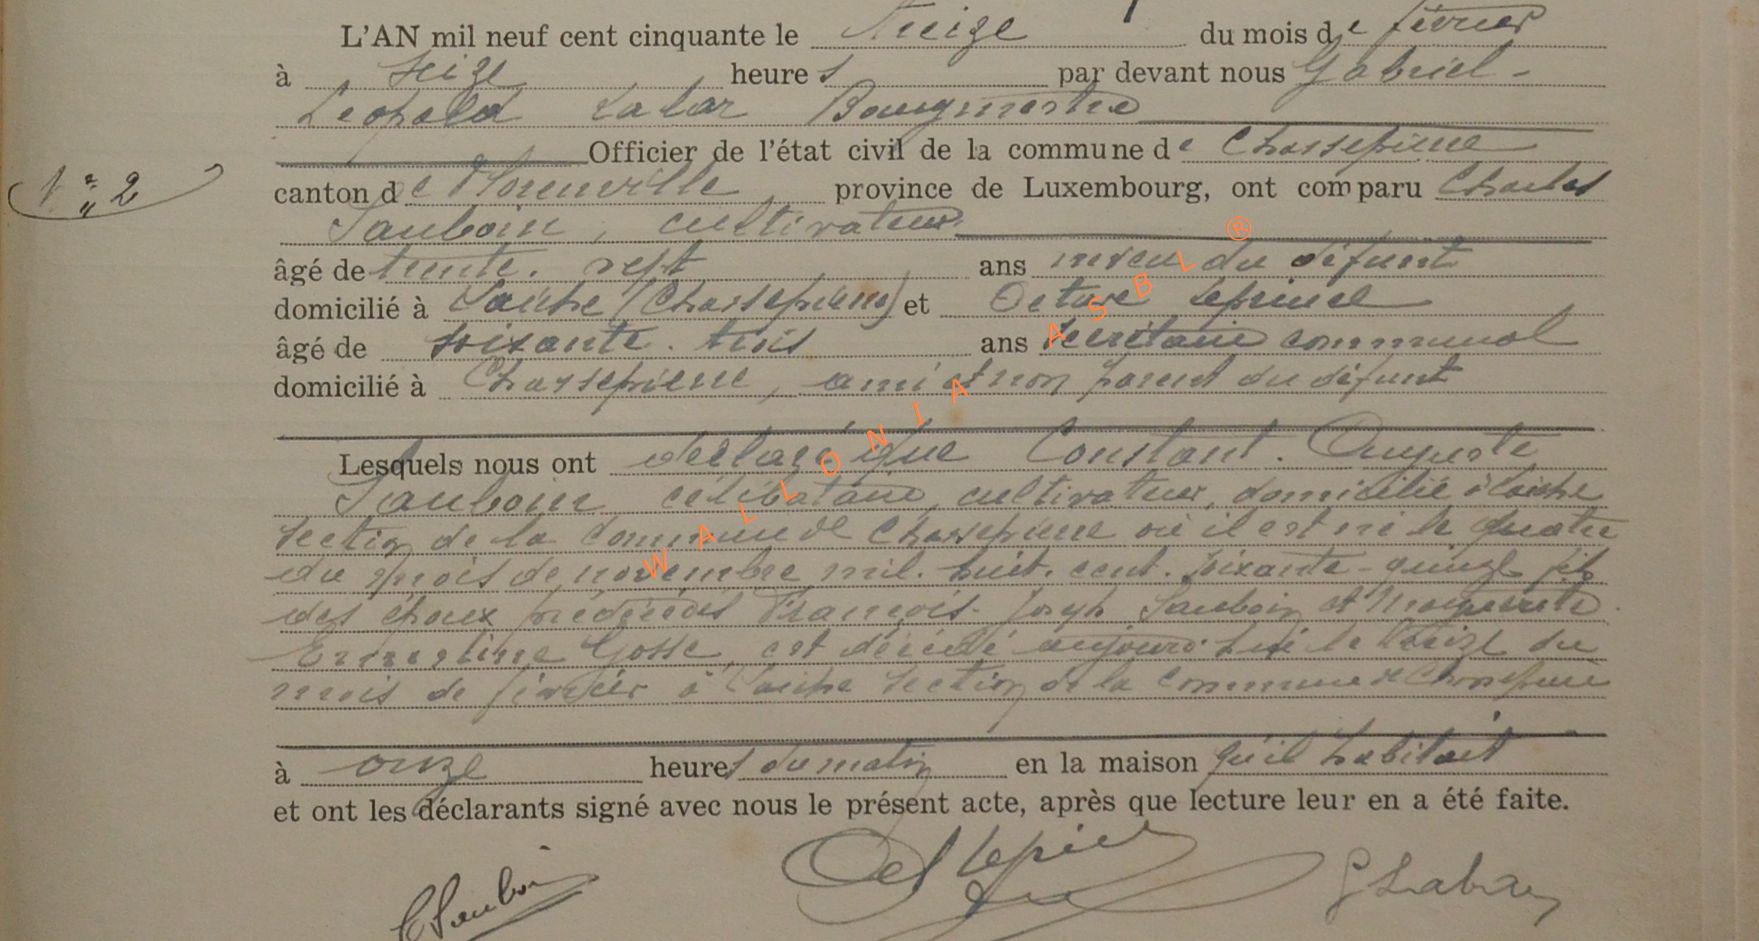 L'AN mil neuf cent cinquante le treize du mois de février
à seize heures par devant nous Gabriel-
Léopold Labar Bourgmestre
Officier de l'état civil de la commune de Chassepierre
N° 2
canton de Florenville province de Luxembourg, ont comparu Charles
Sauboin, cultivateur
âgé de trente-sept ans neveu du défunt
domicilié à Laiche (Chassepierre) et Octave
âgé de soixante-trois ans secrétaire communal
domicilié à Chassepierre, ami et non parent du défunt
Lesquels nous ont déclaré que Constant-Auguste
Sauboin célibataire, cultivateur, domicilié à Laiche
section de la commune de Chassepierre où il est né le quatre
du mois de novembre mil-huit-cent-soixante-quinze fils
des époux prédécédés François-Joseph Sauboin et Marguerite
Ernestine Gosse, est décédé aujourd'hui le treize du
mois de février à Laiche section de la commune de Chassepierre
à onze heures du matin en la maison qu'il habitait
et ont les déclarants signé avec nous le présent acte, après que lecture leur en a été faite.
C Sauboin G Labar
WALLONIA ASBL ®